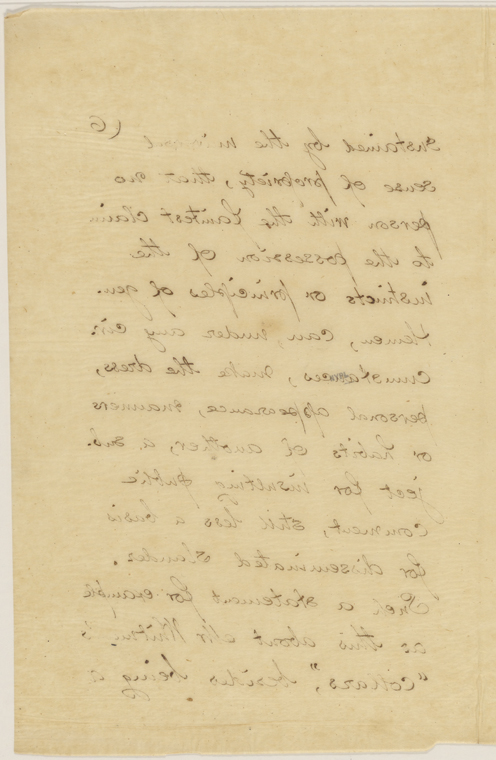 (6
sustained by the
sense of propriety, that no
person with the faintest claim
to the possession of the
instincts or principles of gen-
tlemen, can, under any cir-
cumstances, make the dress,
personal appearance, manners
or habits of another, a sub-
ject for insulting public
comment, still less a basis
for disseminated slander.
Such a statement for example
as this about Mr Whitman's
"collars", besides being a